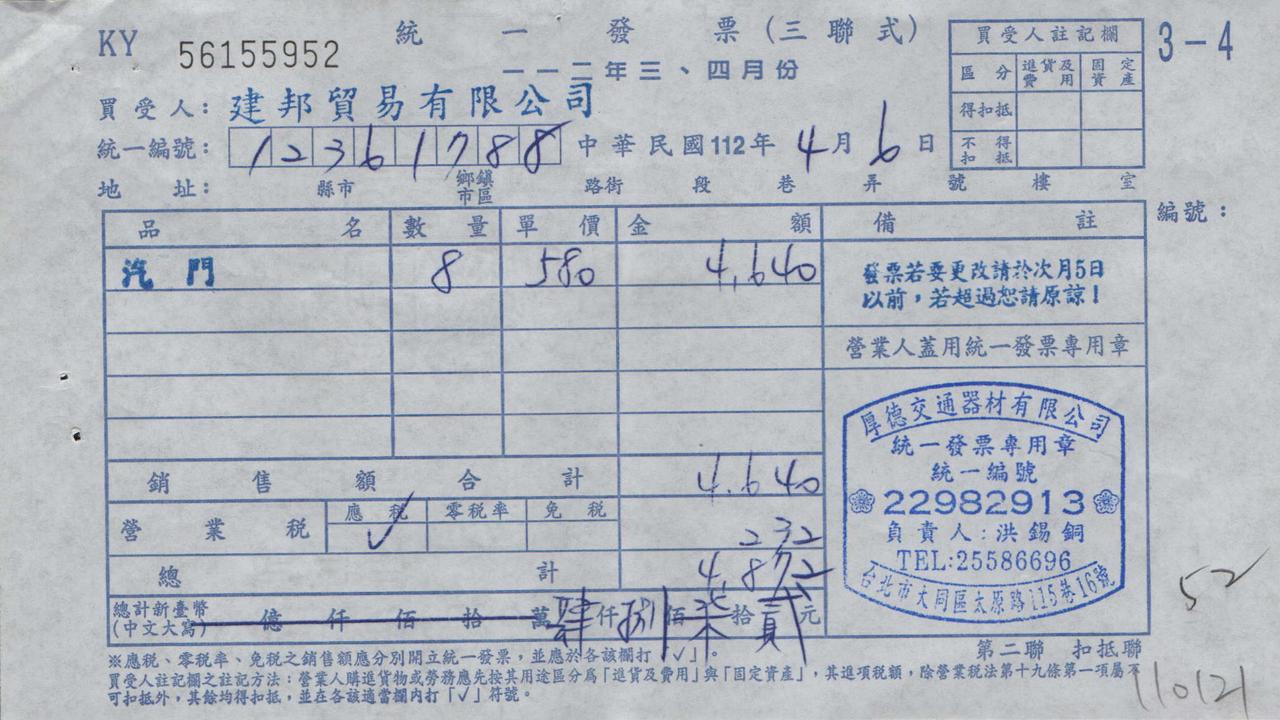 KY 56155952
統一發票(三聯式)
一一二年三、四月份
3-4
買受人註記欄
區分 進貨及費用 固定資產
得扣抵
不得扣抵
買受人：建邦貿易有限公司
統一編號：12361788 中華民國112年4月6日
地址： 縣市 鄉鎮市區 路街 段 巷 弄 號 樓 室
編號：
品名 數量 單價 金額 備註
汽門 8 580 4,640
發票若要更改請於次月5日
以前，若超過恕請原諒！
營業人蓋用統一發票專用章
銷售額合計 4.640
營業稅 應稅 ✓ 零稅率 免稅 232
總計 4,872
總計新臺幣
(中文大寫) 億仟佰拾萬肆仟捌佰柒拾貳元
厚德交通器材有限公司
統一發票專用章
統一編號
22982913
負責人：洪錫銅
TEL:25586696
台北市大同區太原路115巷16號
52
第二聯 扣抵聯
※應稅、零稅率、免稅之銷售額應分別開立統一發票，並應於各該欄打「✓」。
買受人註記欄之註記方法：營業人購進貨物或勞務應先按其用途區分為「進貨及費用」與「固定資產」，其進項稅額，除營業稅法第十九條第一項屬不
可扣抵外，其餘均得扣抵，並在各該適當欄內打「✓」符號。
110121